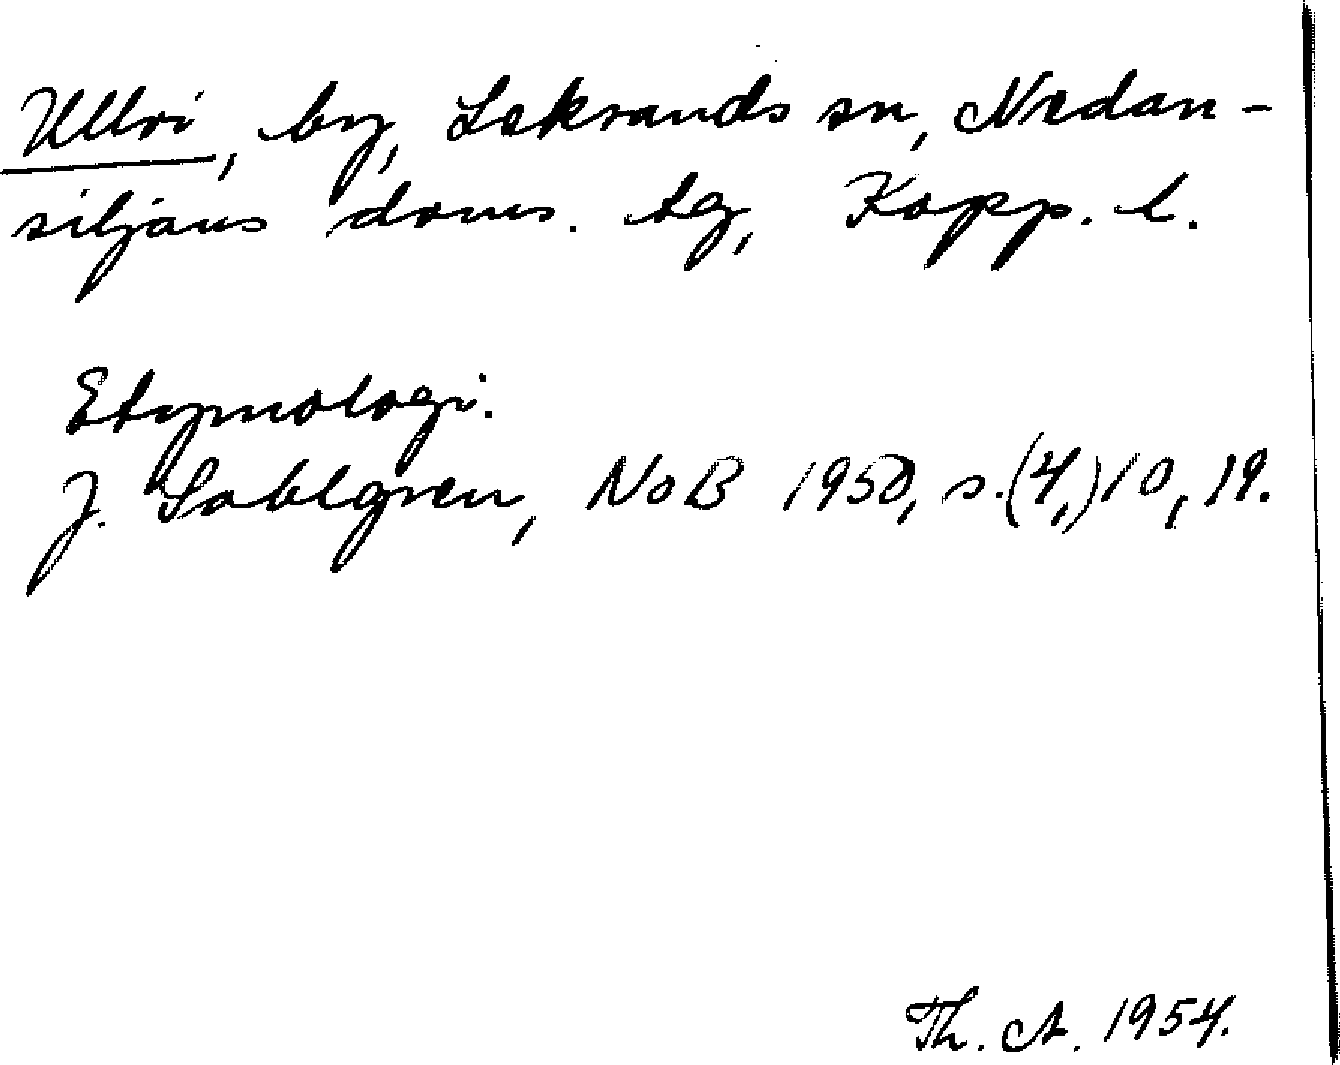 Ullvi, by, Leksands sn, Nedan-
siljans doms. tg, Kopp. l.
Etymologi.
J. Sahlgren, NoB 1950, s. (4,) 10, 19.
Th. A. 1954.